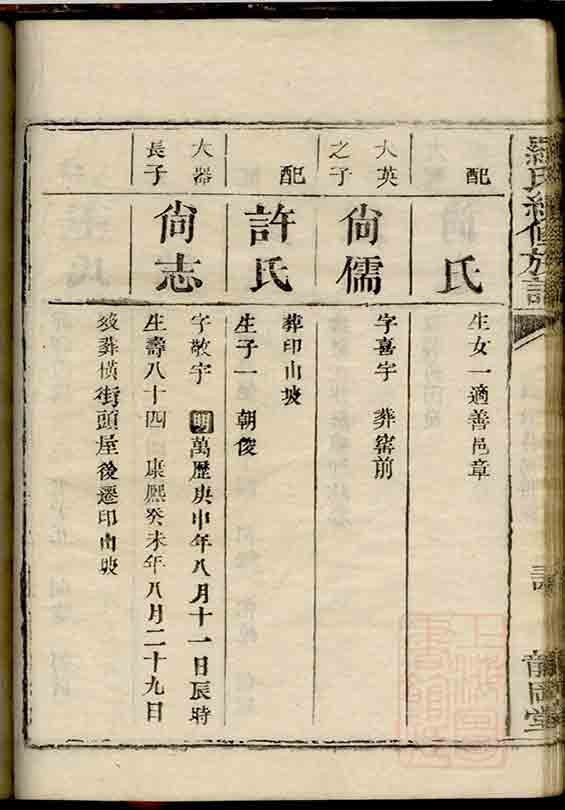 羅氏續修族譜
配
氏
生女一適善邑章
大英
之子
尙儒
字喜宇 葬窰前
配
許氏
葬印山坡
生子一 朝俊
大器
長子
尙志
字敬宇 明萬歷庚申年八月十一日辰時
生壽八十四 康熙癸未年八月二十九日
歿葬橫街頭屋後遷印山坡